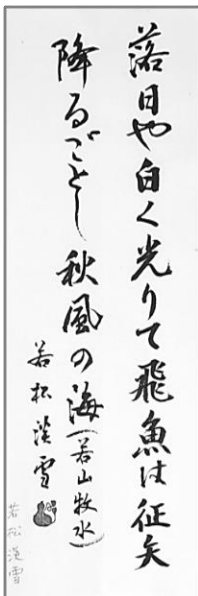 落日や白く光りて飛魚は征矢
降るごとし秋風の海(若山牧水)
若松淡雪
若松淡雪